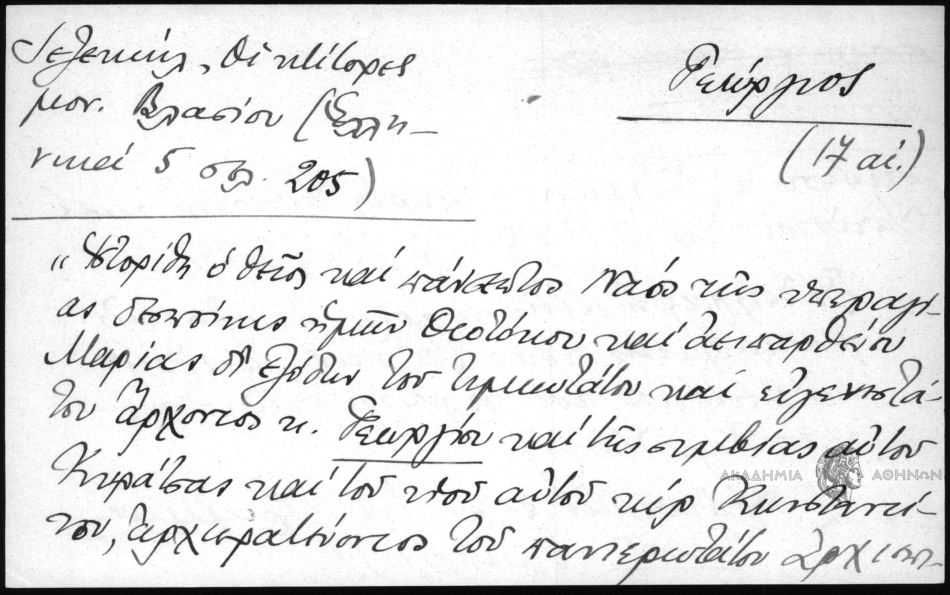 Λεζενκήλ, Οἱ κτίτορες
μον. Βλασίου (Ἑλλη-
νικά 5 σελ. 205)
Γεώργιος
(17 αἰ.)
"Ἱστορίθη ὁ θεῖος καί πάνσεπτος Ναός τῆς ὑπεραγί-
ας δεσποίνης ἡμῶν Θεοτόκου καί ἀειπαρθένου
Μαρίας δι' ἐξόδων τοῦ τιμιωτάτου καί εὐγενεστά-
του ἄρχοντος κ. Γεωργίου καί τῆς συμβίας αὐτοῦ
Κυράτσας καί τοῦ υἱοῦ αὐτοῦ κύρ Κωσταντί-
νου, ἀρχιερατεύοντος τοῦ πανιερωτάτου Ἀρχιεπι-
ΑΚΑΔΗΜΙΑ ΑΘΗΝΩΝ